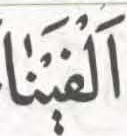 اَلْفَيْنَا